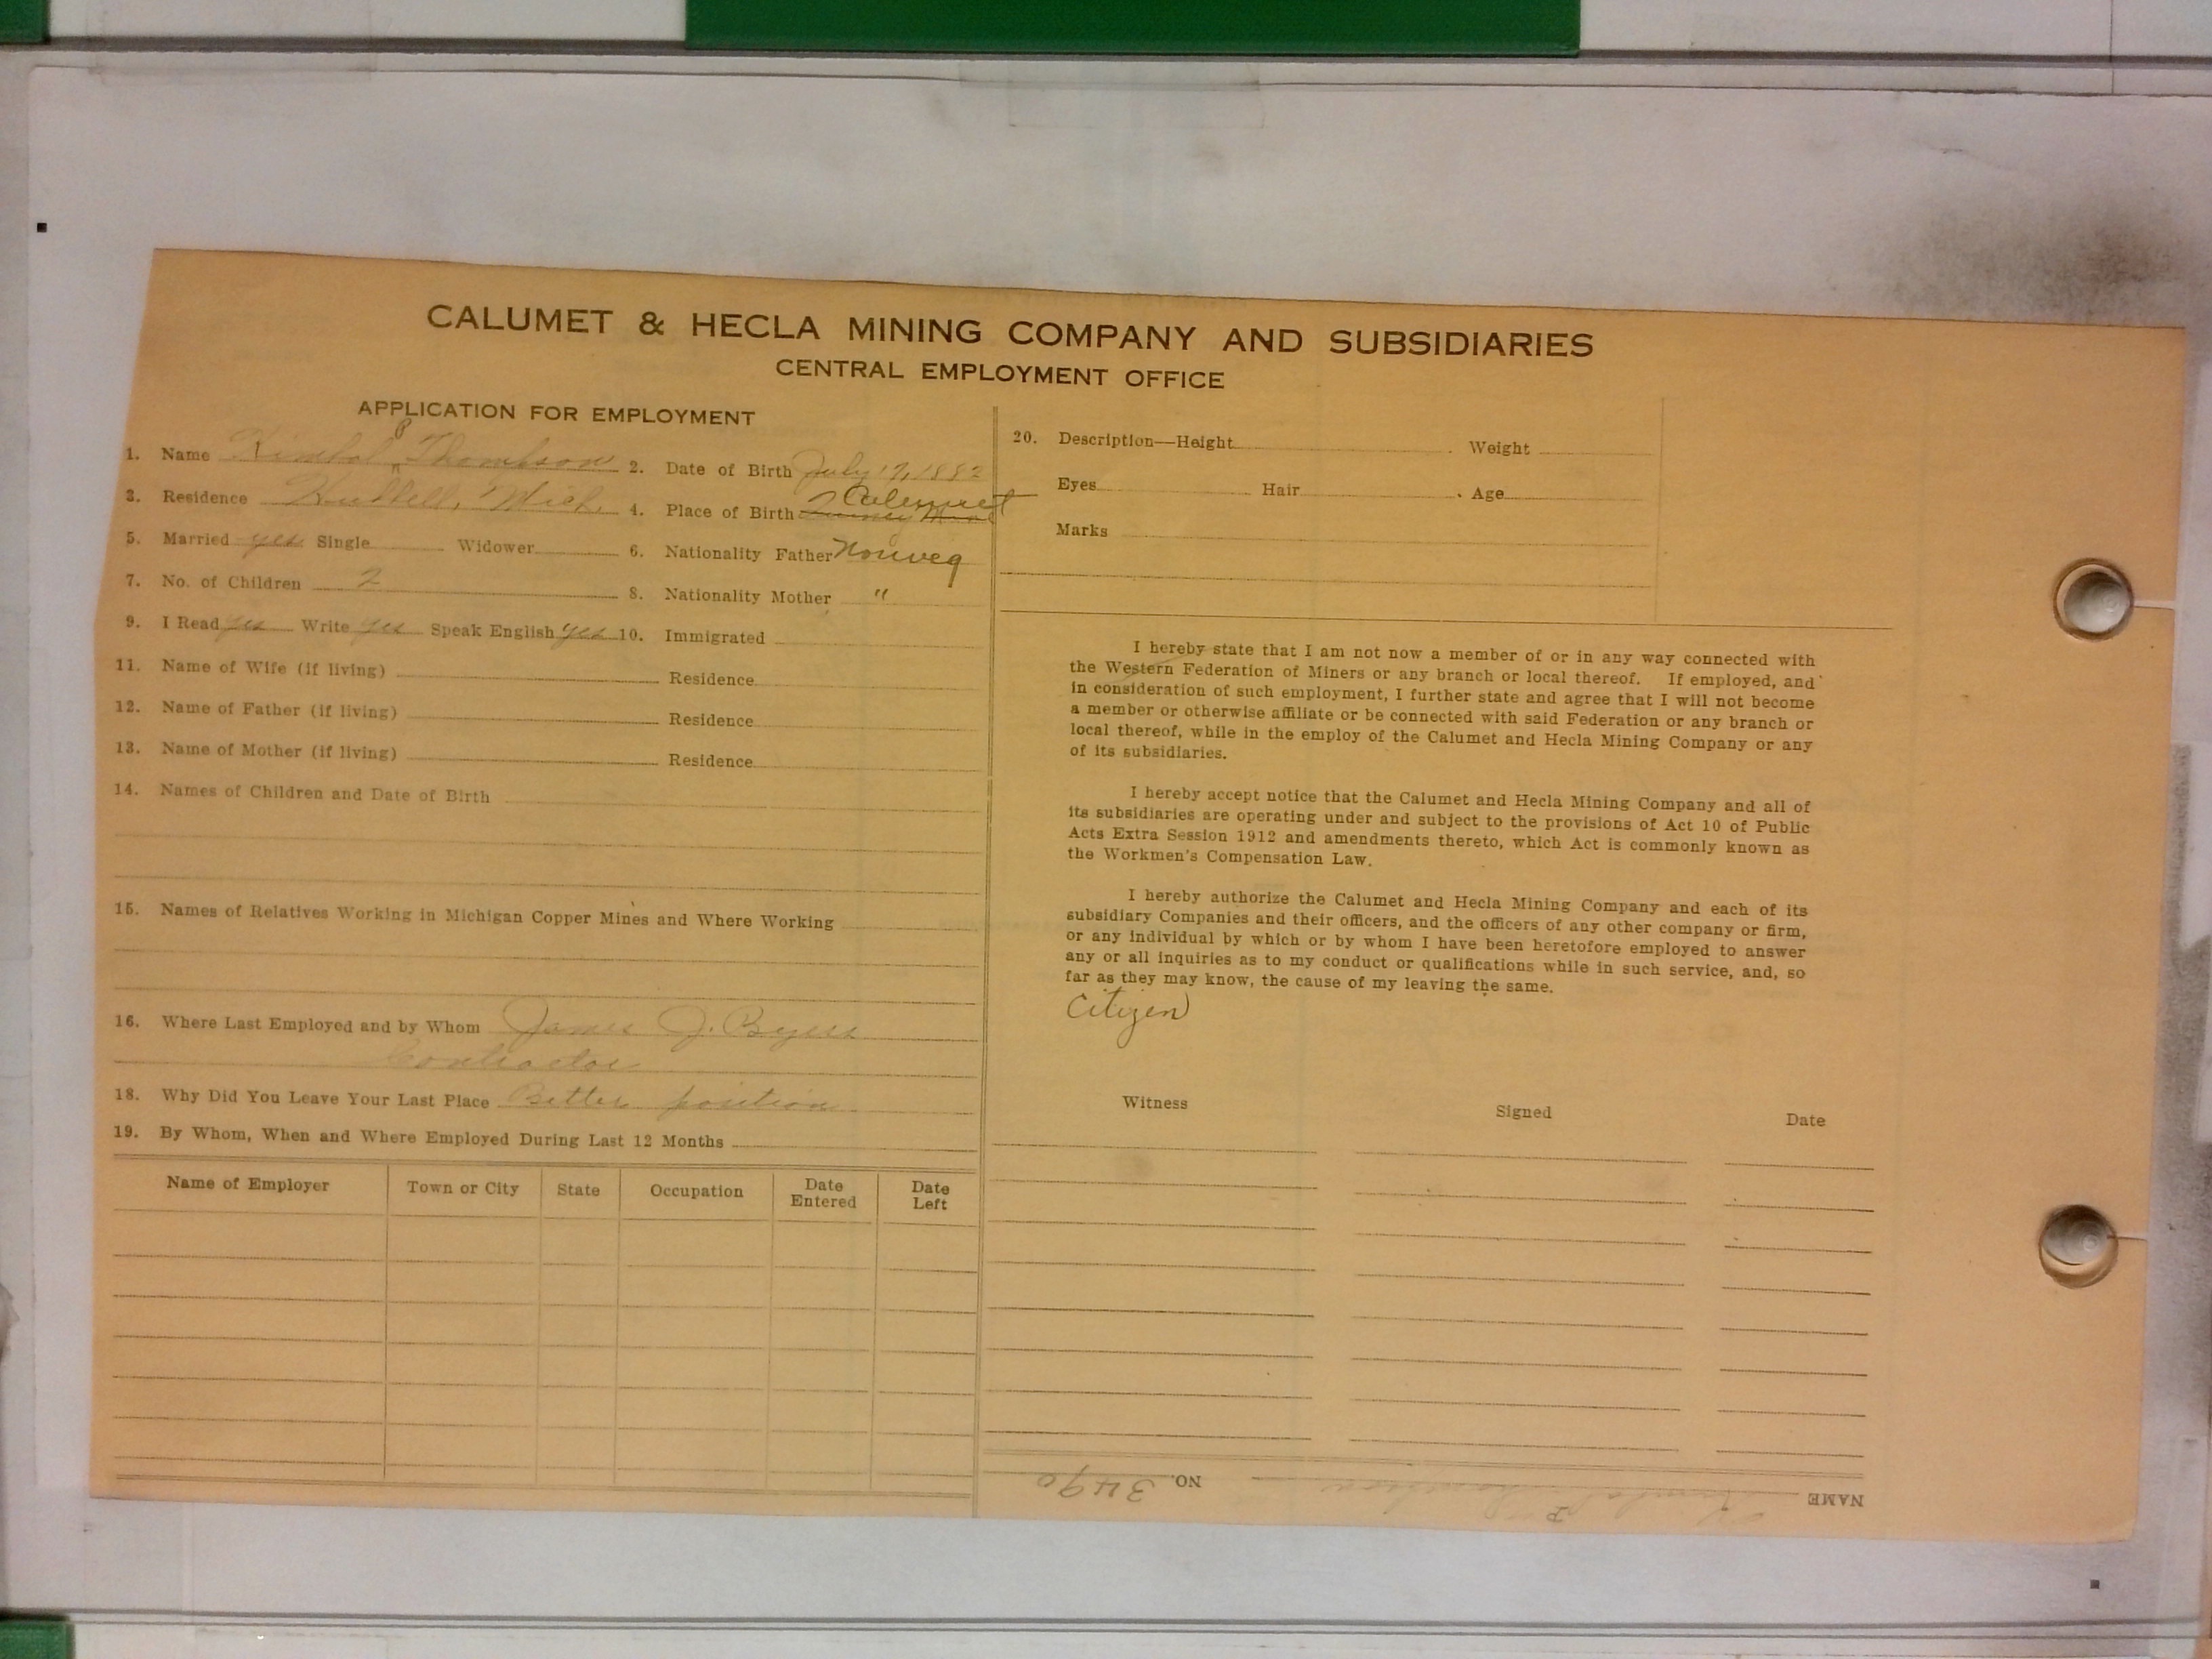 CALUMET & HECLA MINING COMPANY AND SUBSIDIARIES
CENTRAL EMPLOYMENT OFFICE
APPLICATION FOR EMPLOYMENT
1. Name Kimbal P Thompson 2. Date of Birth July 17, 1882
3. Residence Hubbell, Mich. 4. Place of Birth Calumet
5. Married yes Single Widower 6. Nationality Father Norweg
7. No. of Children 2 8. Nationality Mother "
9. I Read yes Write yes Speak English yes 10. Immigrated
11. Name of Wife (if living) Residence
12. Name of Father (if living) Residence
13. Name of Mother (if living) Residence
14. Names of Children and Date of Birth
15. Names of Relatives Working in Michigan Copper Mines and Where Working
16. Where Last Employed and by Whom James J. Byers
Contractor
18. Why Did You Leave Your Last Place Better position
19. By Whom, When and Where Employed During Last 12 Months
Name of Employer Town or City State Occupation Date Entered Date Left
20. Description—Height Weight
Eyes Hair Age
Marks
I hereby state that I am not now a member of or in any way connected with
the Western Federation of Miners or any branch or local thereof. If employed, and
in consideration of such employment, I further state and agree that I will not become
a member or otherwise affiliate or be connected with said Federation or any branch or
local thereof, while in the employ of the Calumet and Hecla Mining Company or any
of its subsidiaries.
I hereby accept notice that the Calumet and Hecla Mining Company and all of
its subsidiaries are operating under and subject to the provisions of Act 10 of Public
Acts Extra Session 1912 and amendments thereto, which Act is commonly known as
the Workmen's Compensation Law.
I hereby authorize the Calumet and Hecla Mining Company and each of its
subsidiary Companies and their officers, and the officers of any other company or firm,
or any individual by which or by whom I have been heretofore employed to answer
any or all inquiries as to my conduct or qualifications while in such service, and, so
far as they may know, the cause of my leaving the same.
Citizen
Witness Signed Date
NAME Kimbal P Thompson NO. 3490